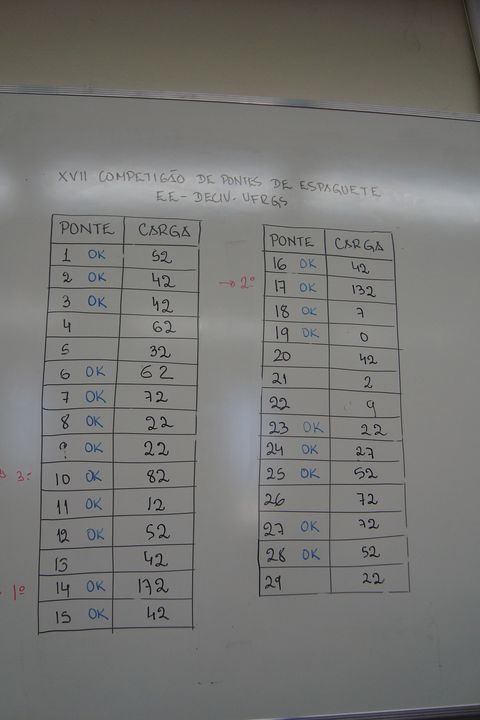 XVII COMPETIÇÃO DE PONTES DE ESPAGUETE
EE - DECIV - UFRGS
PONTE CARGA
1 OK 52
2 OK 42
3 OK 42
4 62
5 32
6 OK 62
7 OK 72
8 OK 22
9 OK 22
3º 10 OK 82
11 OK 12
12 OK 52
13 42
1º 14 OK 172
15 OK 42
PONTE CARGA
16 OK 42
→ 2º 17 OK 132
18 OK 7
19 OK 0
20 42
21 2
22 9
23 OK 22
24 OK 27
25 OK 52
26 72
27 OK 72
28 OK 52
29 22